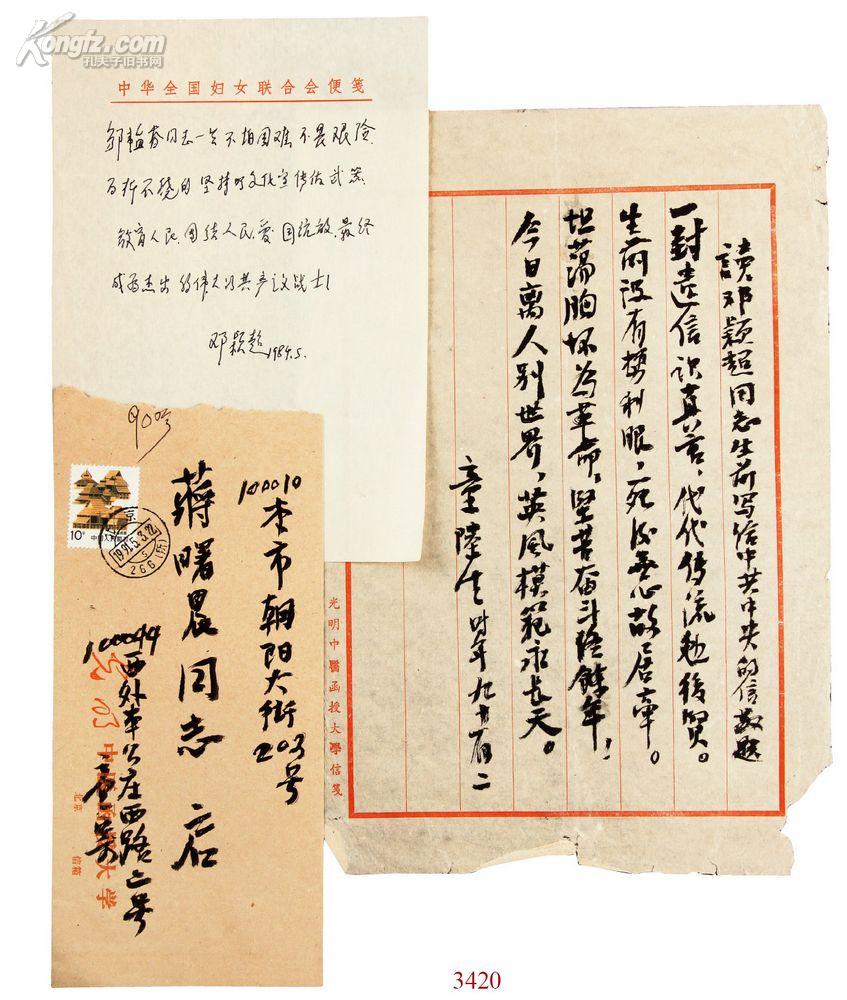 Kongfz.com
孔夫子旧书网
中华全国妇女联合会便笺
邹韬奋同志一生不怕困难不畏艰险
百折不挠的坚持以文化宣传作武器
教育人民、团结人民、爱国抗敌、最终
成为杰出的伟大的共产主义战士！
邓颖超 1984.5.
讀邓颖超同志生前写给中共中央的信敬题
一封遗信识真言，代代传流勉後贤。
生前没有
坦荡胸怀为革命，坚苦奋斗
今日离人别世界，英风模范永长天。
童陸生 时年九十有二
光明中醫函授大學信笺
90岁
10分
中国人民邮政
北京
100010
本市朝阳大街
203号
蒋曙晨同志 启
100044
西外车公庄西路二号
童
光明
中醫函授大学
北京
信箱
3420